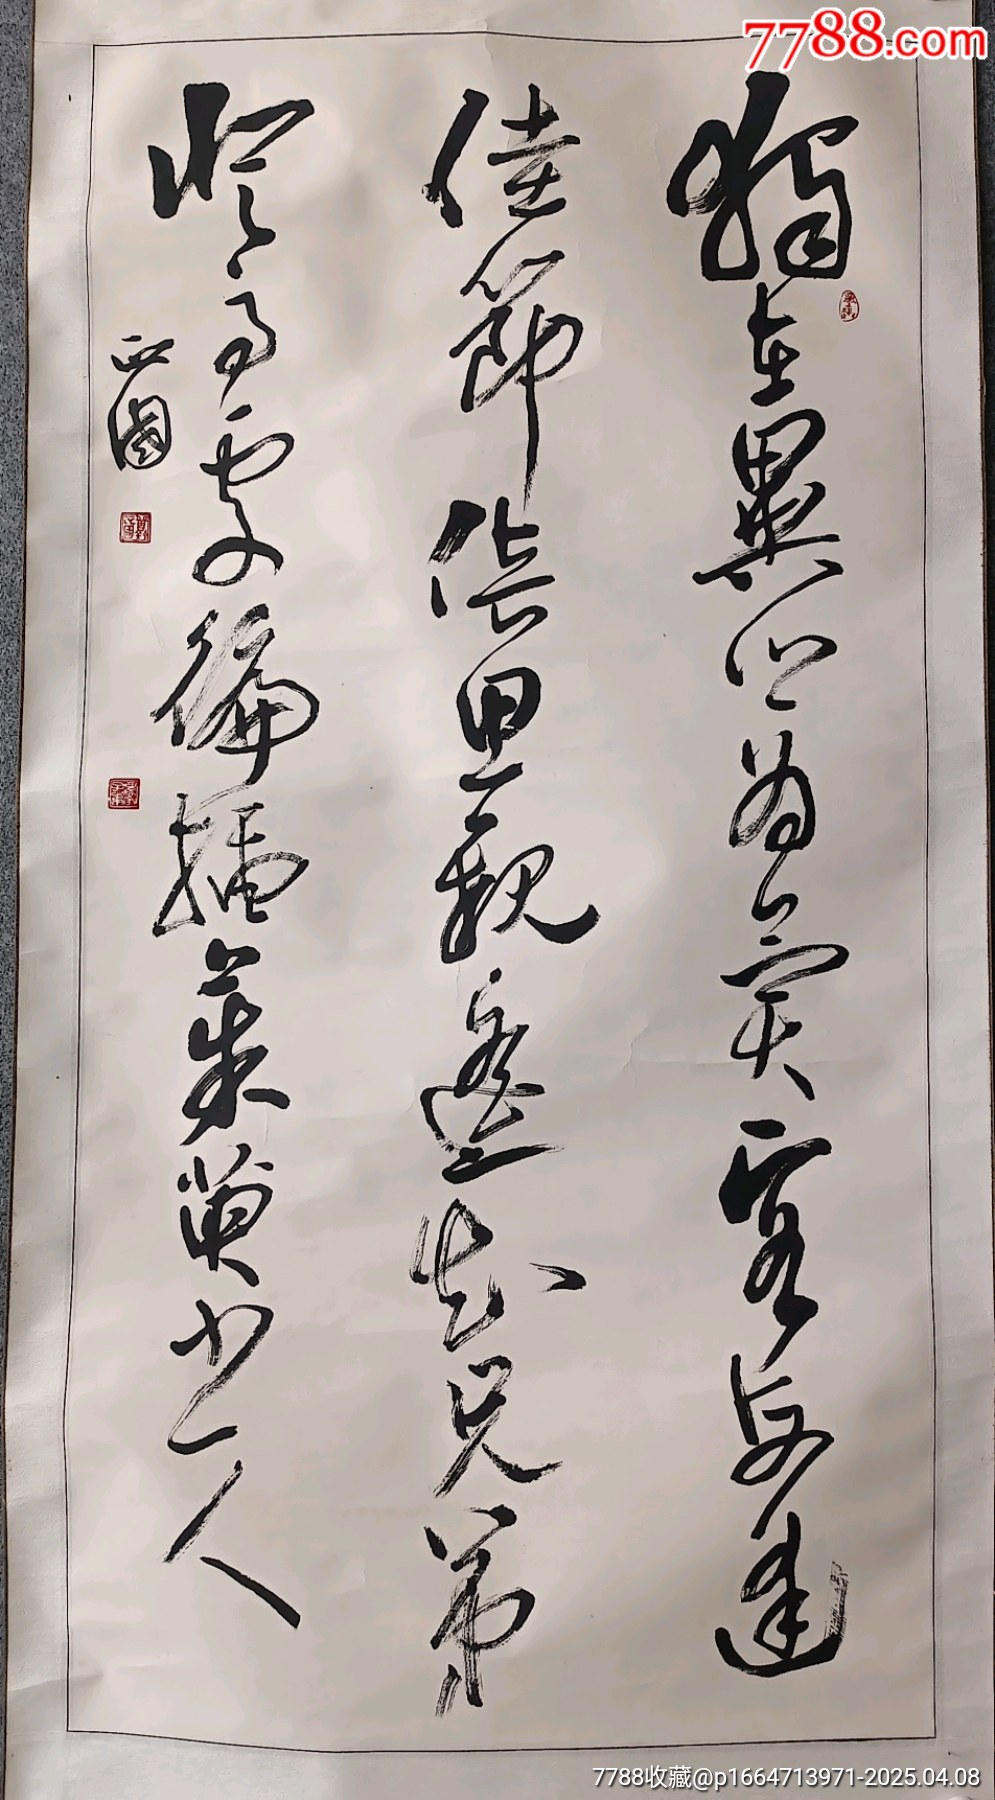 7788.com
獨在異鄉為異客每逢
佳節倍思親遙知兄弟
登高處徧插茱萸少一人
7788收藏@p1664713971-2025.04.08